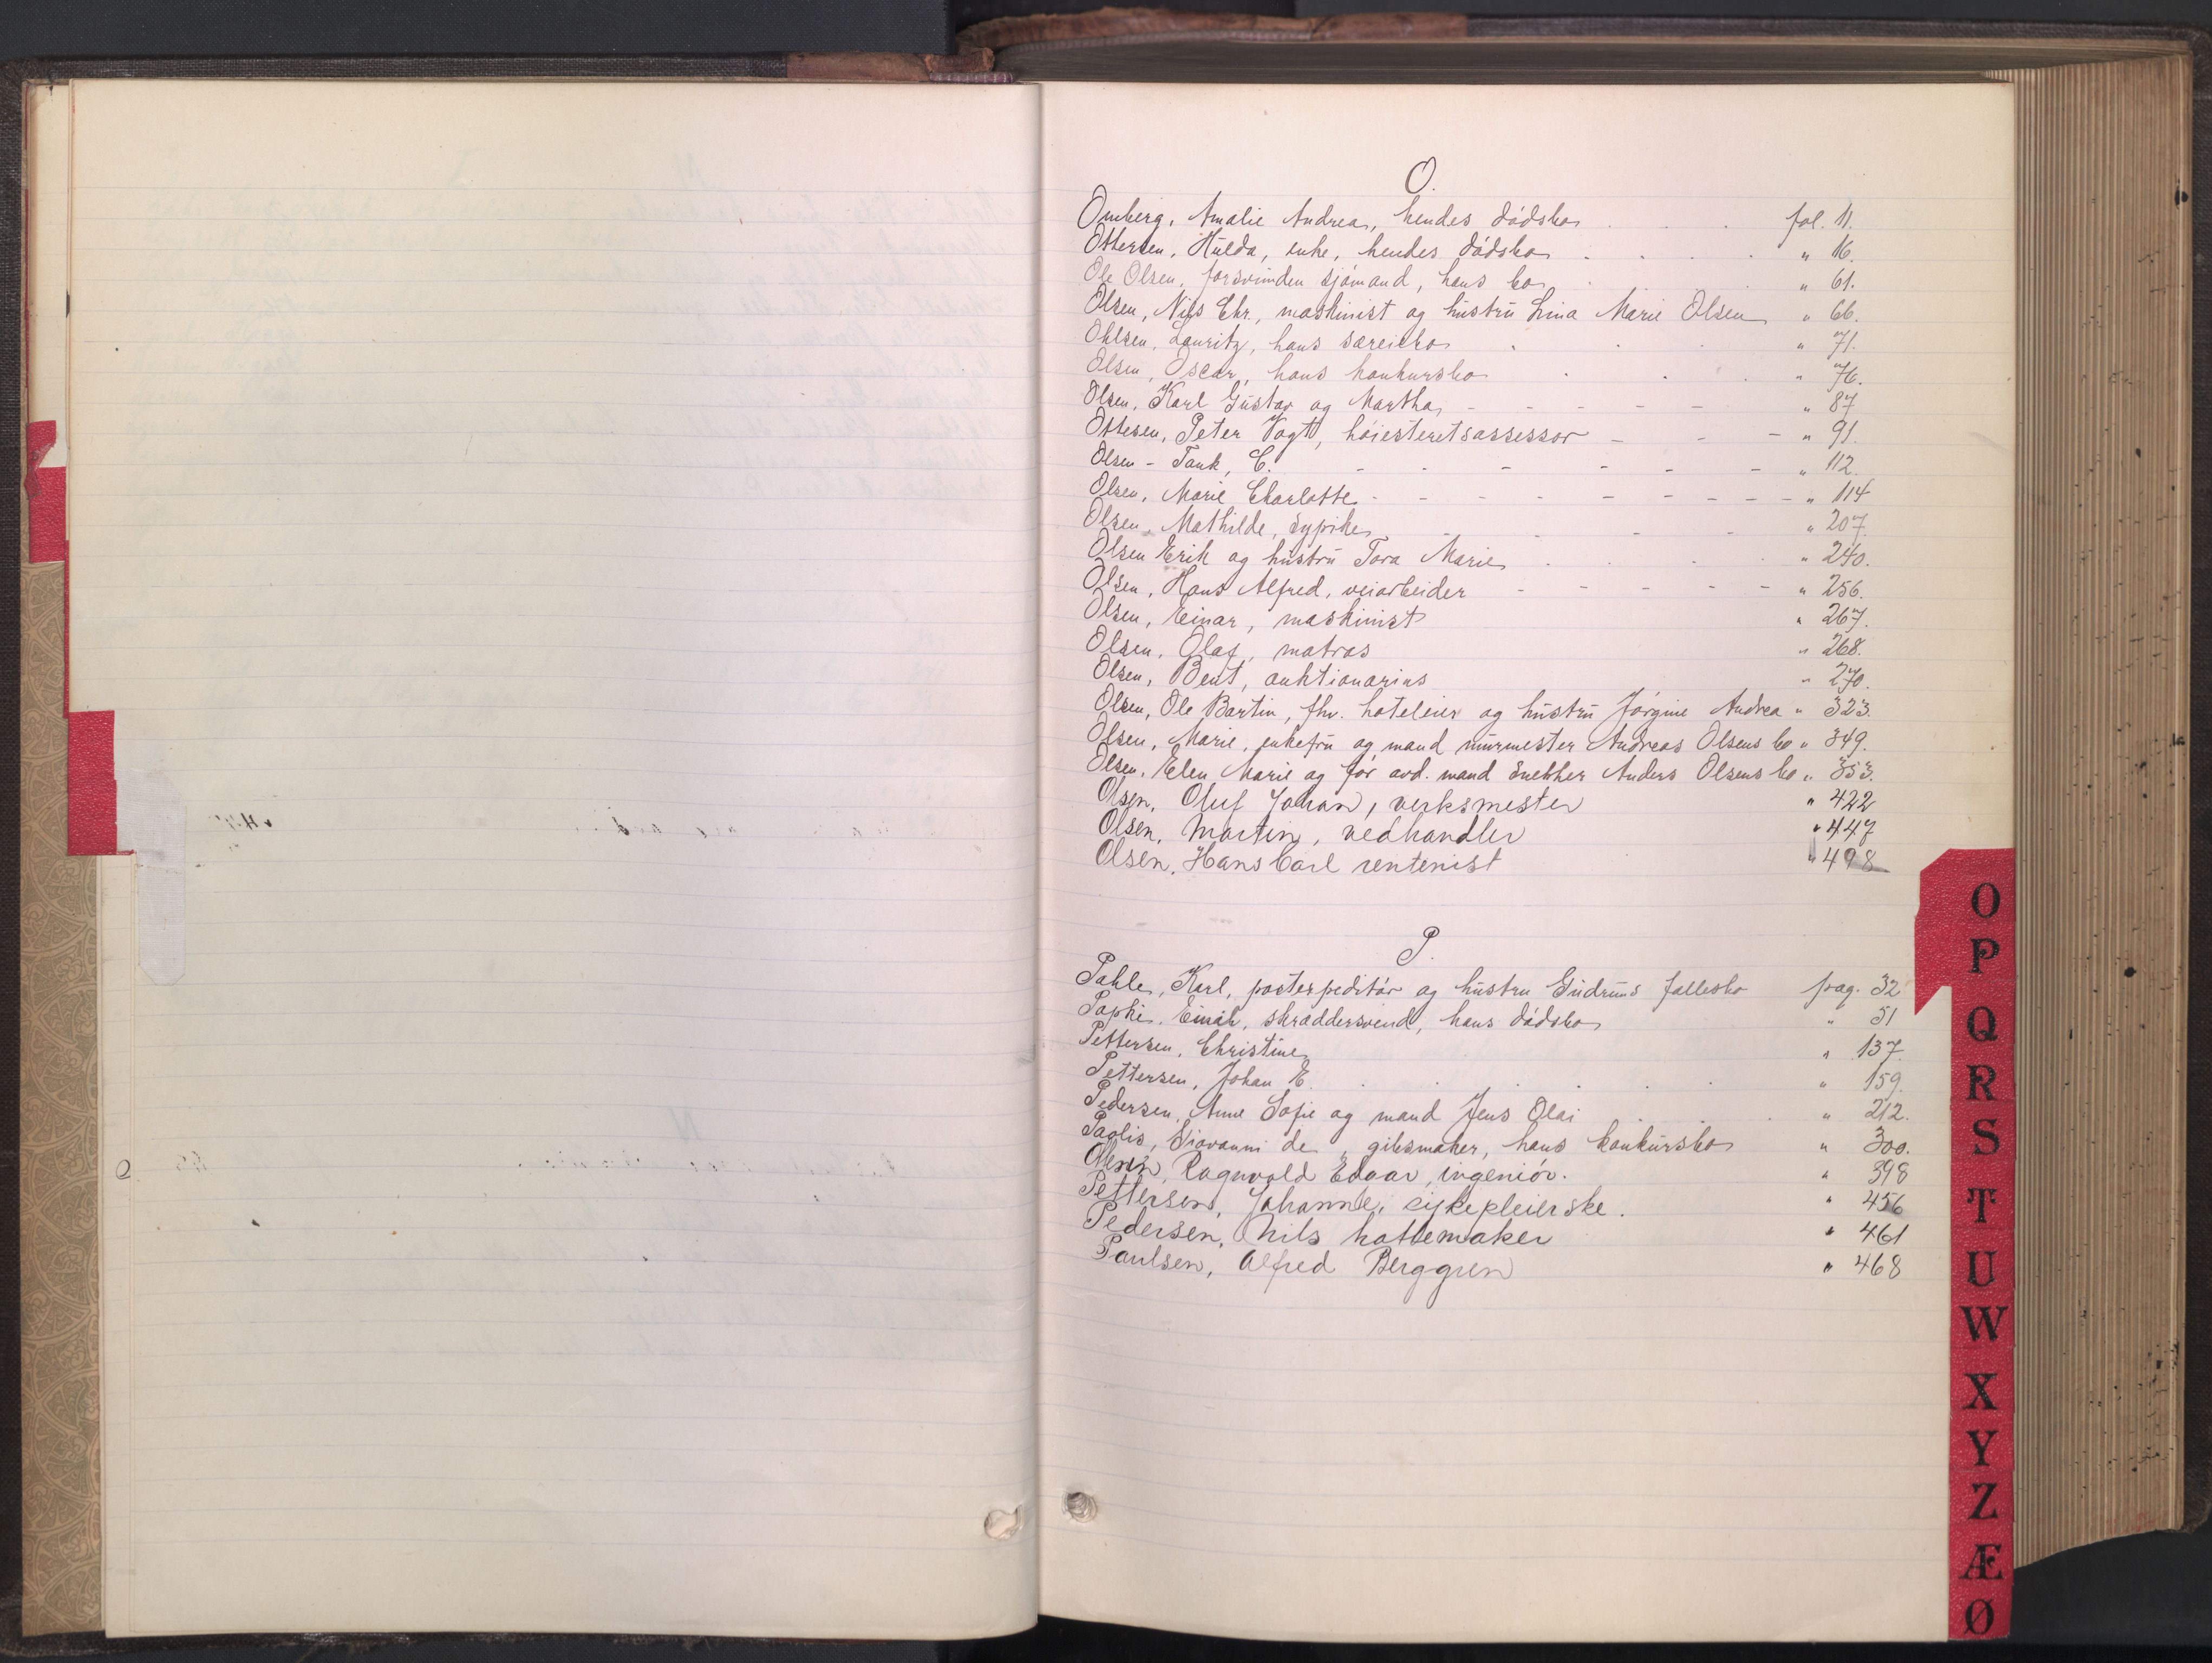 O.
Omberg, Amalie Andrea, hendes dødsbo . . . fol. 11.
Ottersen, Hulda, enke, hendes dødsbo . . . . " 16.
Ole Olsen, forsvunden sjømand, hans bo . . " 61.
Olsen, Nils Chr., maskinist og hustru Lina Marie Olsen " 66.
Ohlsen, Lauritz, hans særeiebo . . . " 71.
Olsen, Oscar, hans konkursbo . . . " 76.
Olsen, Karl Gustav og Martha, - - - - - " 87
Ottesen, Peter Vogt, høiesteretsassessor - - - " 91.
Olsen - Tank, C. - - - - - - " 112.
Olsen, Marie Charlotte - - - - - - - - - " 114
Olsen, Mathilde, sypike - - - - " 207.
Olsen Erik og hustru Tora Marie . . . " 240.
Olsen, Hans Alfred, veiarbeider - - - - - " 256.
Olsen, Einar, maskinist " 267.
Olsen, Olaf, matros " 268.
Olsen, Bent, auktionarius " 270.
Olsen, Ole Bartin, fhv. hoteleier og hustru Jørgine Andrea " 323.
Olsen, Marie, enkefru og mand murmester Andreas Olsens bo " 349.
Olsen, Elen Marie og før avd. mand snekker Anders Olsens bo " 353.
Olsen, Oluf Johan, verksmester " 422
Olsen, Martin, vedhandler " 447
Olsen, Hans Carl rentenist " 498
P.
Pahle, Karl, postexpeditør og hustru Gudruns fællesbo pag. 32
Paphi, skræddersvend, hans dødsbo " 51
Pettersen, Christine, " 137.
Pettersen, Johan E. . . . . . " 159.
Pedersen, Anne Sofie og mand Jens Olai . . . " 212.
Paolis, Giovanni de, gibsmaker, hans konkursbo " 300.
Olsen, Ragnvald Edvar, ingeniør. " 398
Pettersen, Johanne, sykepleierske. " 456
Pedersen, Nils hattemaker " 461
Paulsen, Alfred Berggren " 468
O
P
Q
R
S
T
U
W
X
Y
Z
Æ
Ø